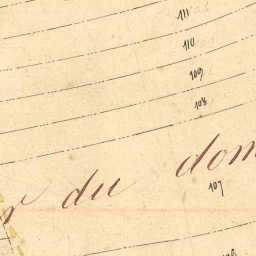 111
110
109
108
r du dom
107